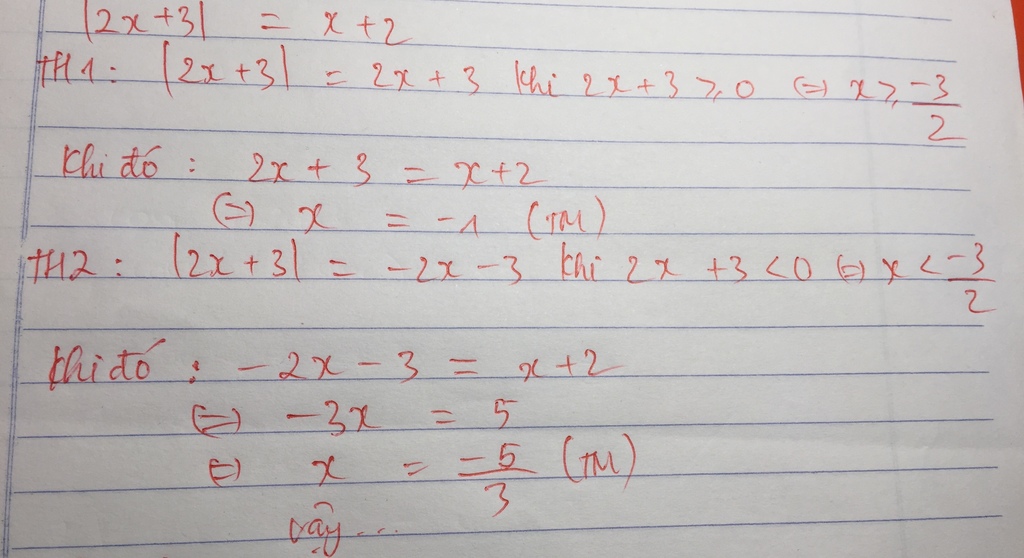 |2x+3| = x+2
TH1: |2x+3| = 2x+3 khi 2x+3 ⩾ 0 (=) x ⩾ -3/2
Khi đó: 2x + 3 = x+2
(=) x = -1 (TM)
TH2: |2x+3| = -2x-3 khi 2x +3 < 0 (=) x < -3/2
Khi đó: -2x-3 = x+2
(=) -3x = 5
(=) x = -5/3 (TM)
vậy...